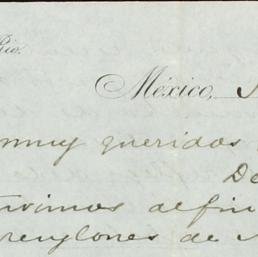 Rio.
México,
muy queridos
De
tuvimos al fin
renglones de